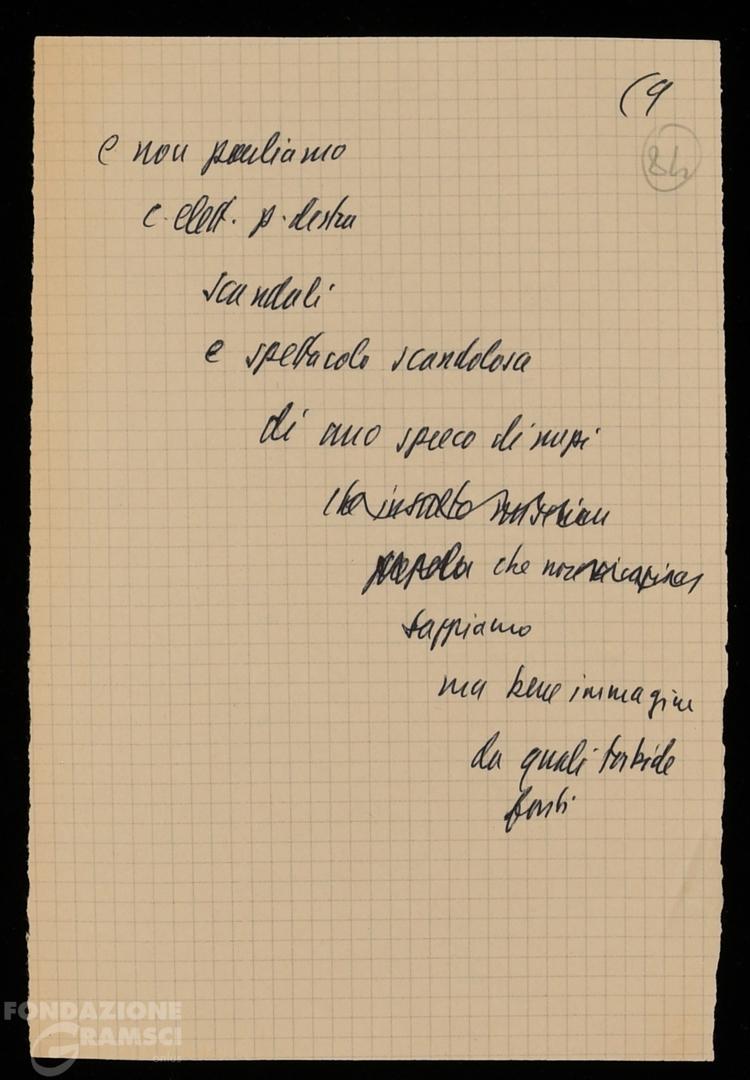 (9
84
e non parliamo
c. elett. p. destra
scandali
e spettacolo scandolosa
di uno spreco di mezzi
che
che non
sappiamo
ma bene immagine
da quali torbide
fonti
FONDAZIONE
GRAMSCI
onlus